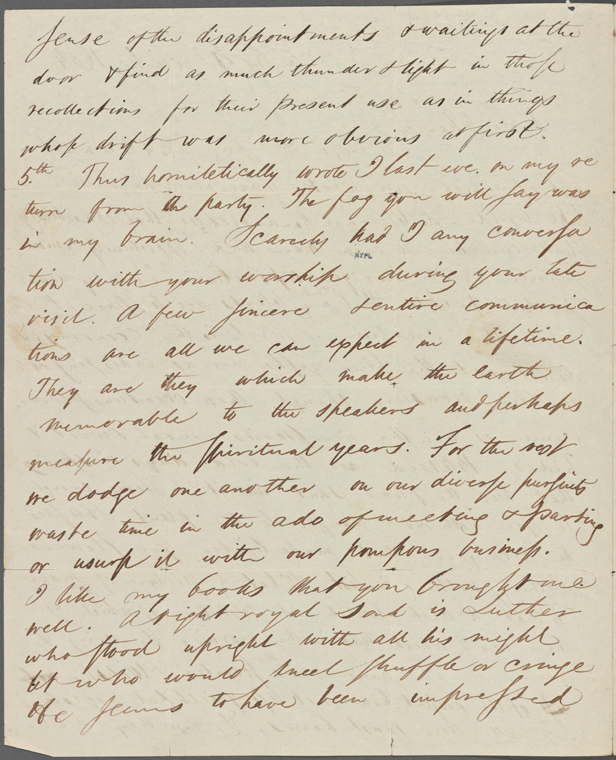 sense of the disappointments & waitings at the
door & find as much thunder & light in those
recollections for their present use as in things
whose drift was more obvious at first.
5.th Thus homiletically wrote I last eve. on my re
turn from the party. The fog you will say was
in my brain. Scarcely had I any conversa
NYPL
tion with your worship during your late
visit. A few sincere & entire communica
tions are all we can expect in a lifetime.
They are they which make the earth
memorable to the speakers and perhaps
measure the spiritual years. For the rest
we dodge one another on our diverse pursuits
waste time in the ado of meeting & parting
or usurp it with our pompous business.
I like my books that you brought me
well. A right royal soul is Luther
who stood upright with all his might
let who would kneel shuffle or cringe
He seems to have been impressed